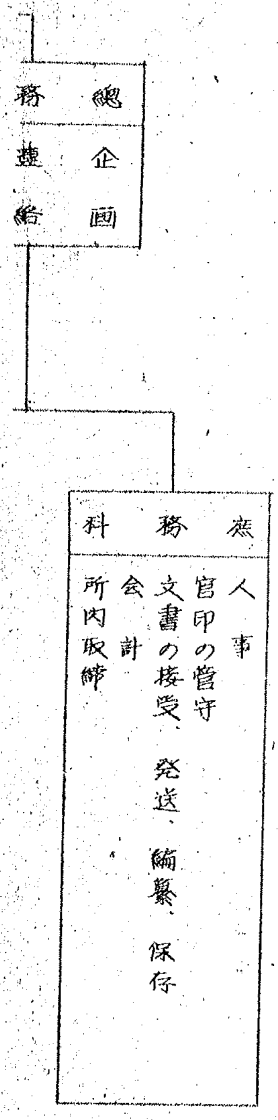 總務
企画
連絡
庶務科
人事
官印の管守
文書の接受、発送、編纂、保存
会計
所内取締